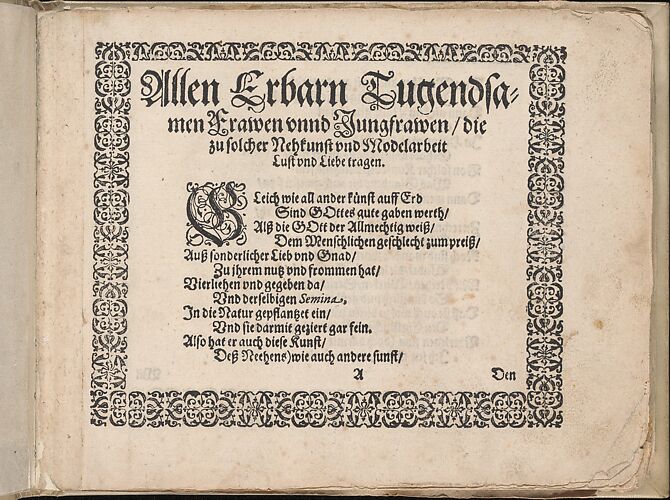 Allen Erbarn Tugendsa-
men Frawen vnnd Jungfrawen / die
zu solcher Nehkunst vnd Modelarbeit
Lust vnd Liebe tragen.
GLeich wie all ander künst auff Erd
Sind GOttes gute gaben werth/
Alß die GOtt der Allmechtig weiß/
Dem Menschlichen geschlecht zum preiß/
Auß sonderlicher Lieb vnd Gnad/
Zu ihrem nutz vnd frommen hat/
Vierliehen vnd gegeben da/
Vnd derselbigen Semina,
In die Natur gepflantzet ein/
Vnd sie darmit geziert gar fein.
Also hat er auch diese Kunst/
Deß Neehens) wie auch andere sunst/
A Den